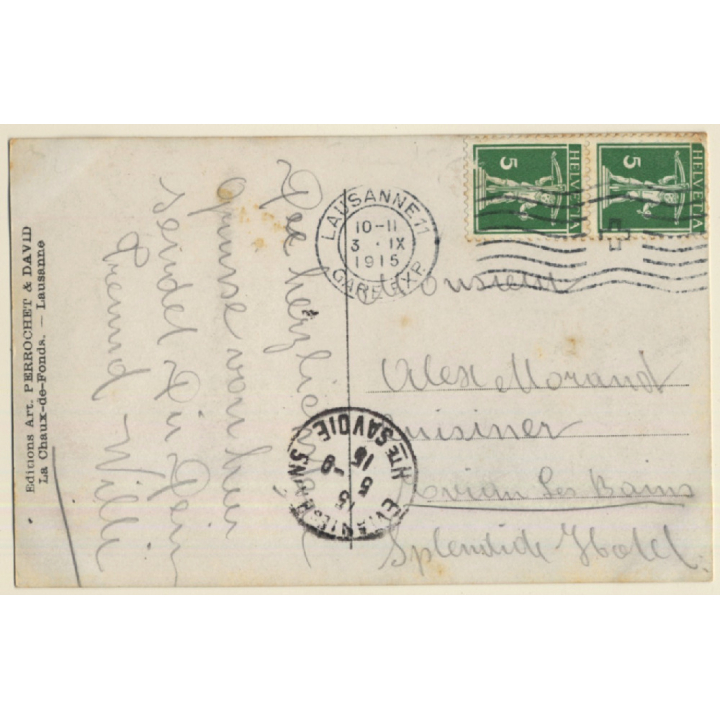 Editions Art. PERROCHET & DAVID
La Chaux-de-Fonds. — Lausanne
Die herzlichsten
Grüsse von hier
sendet Dir Dein
Freund Willi
HELVETIA
5
HELVETIA
5
LAUSANNE 11
10-11
3 · IX
1915
GARE EXP.
Monsieur
Alex Morand
Cuisiner
Evian les Bains
Splendide Hotel.
EVIAN-LES-BAINS
5 -9
15
HTE SAVOIE